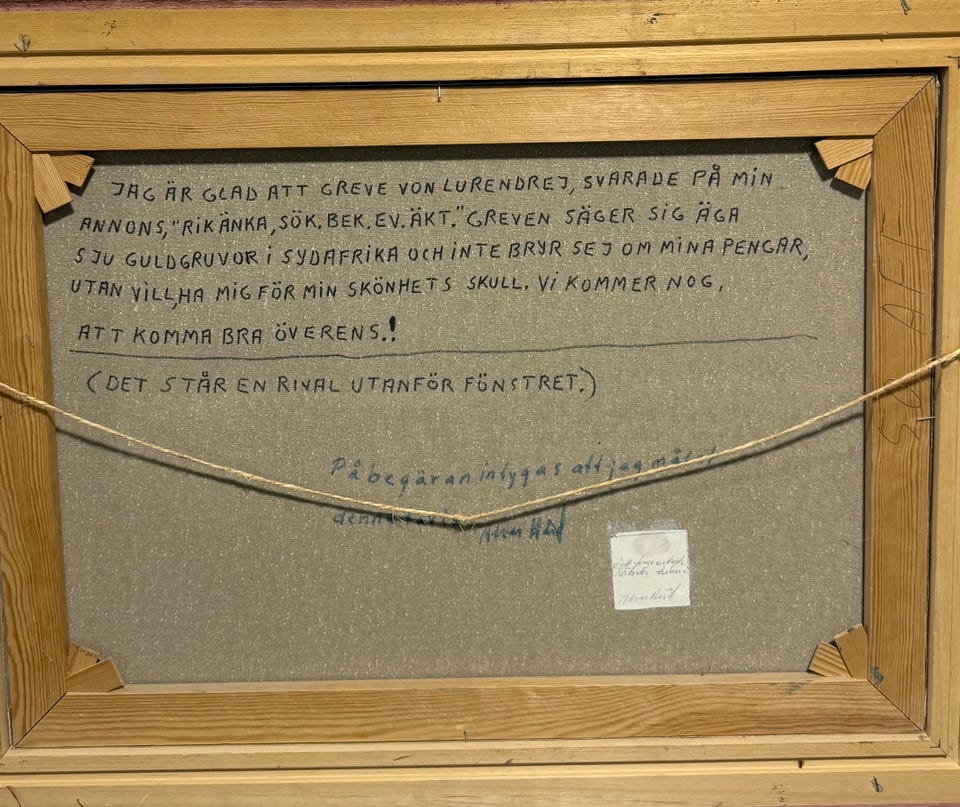 JAG ÄR GLAD ATT GREVE VON LURENDREJ, SVARADE PÅ MIN
ANNONS, "RIK ÄNKA, SÖK. BEK. EV. ÄKT." GREVEN SÄGER SIG ÄGA
SJU GULDGRUVOR I SYDAFRIKA OCH INTE BRYR SEJ OM MINA PENGAR,
UTAN VILL, HA MIG FÖR MIN SKÖNHETS SKULL. VI KOMMER NOG,
ATT KOMMA BRA ÖVERENS.!
(DET STÅR EN RIVAL UTANFÖR FÖNSTRET.)
På begäran intygas att jag målat
denna tavla